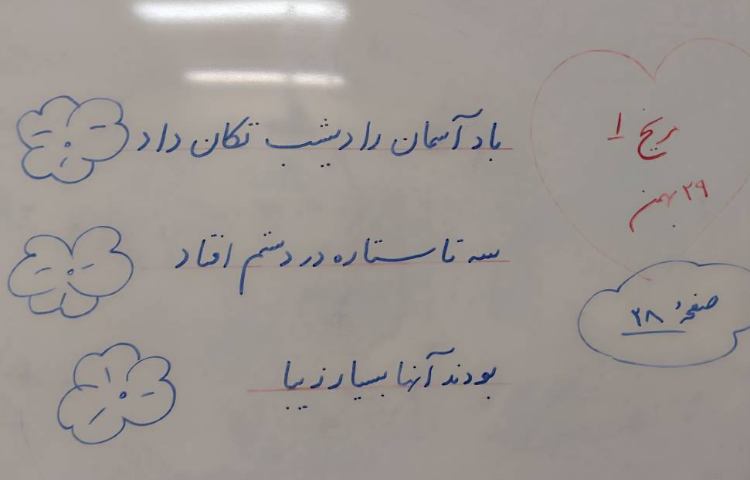 باد آسمان را دیشب تکان داد
سه تا ستاره در دستم افتاد
بودند آنها بسیار زیبا
۲۹ بهمن
صفحهٔ ۲۸